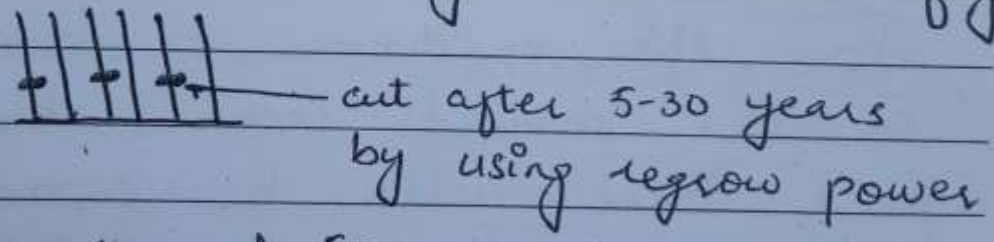 cut after 5-30 years
by using regrow power